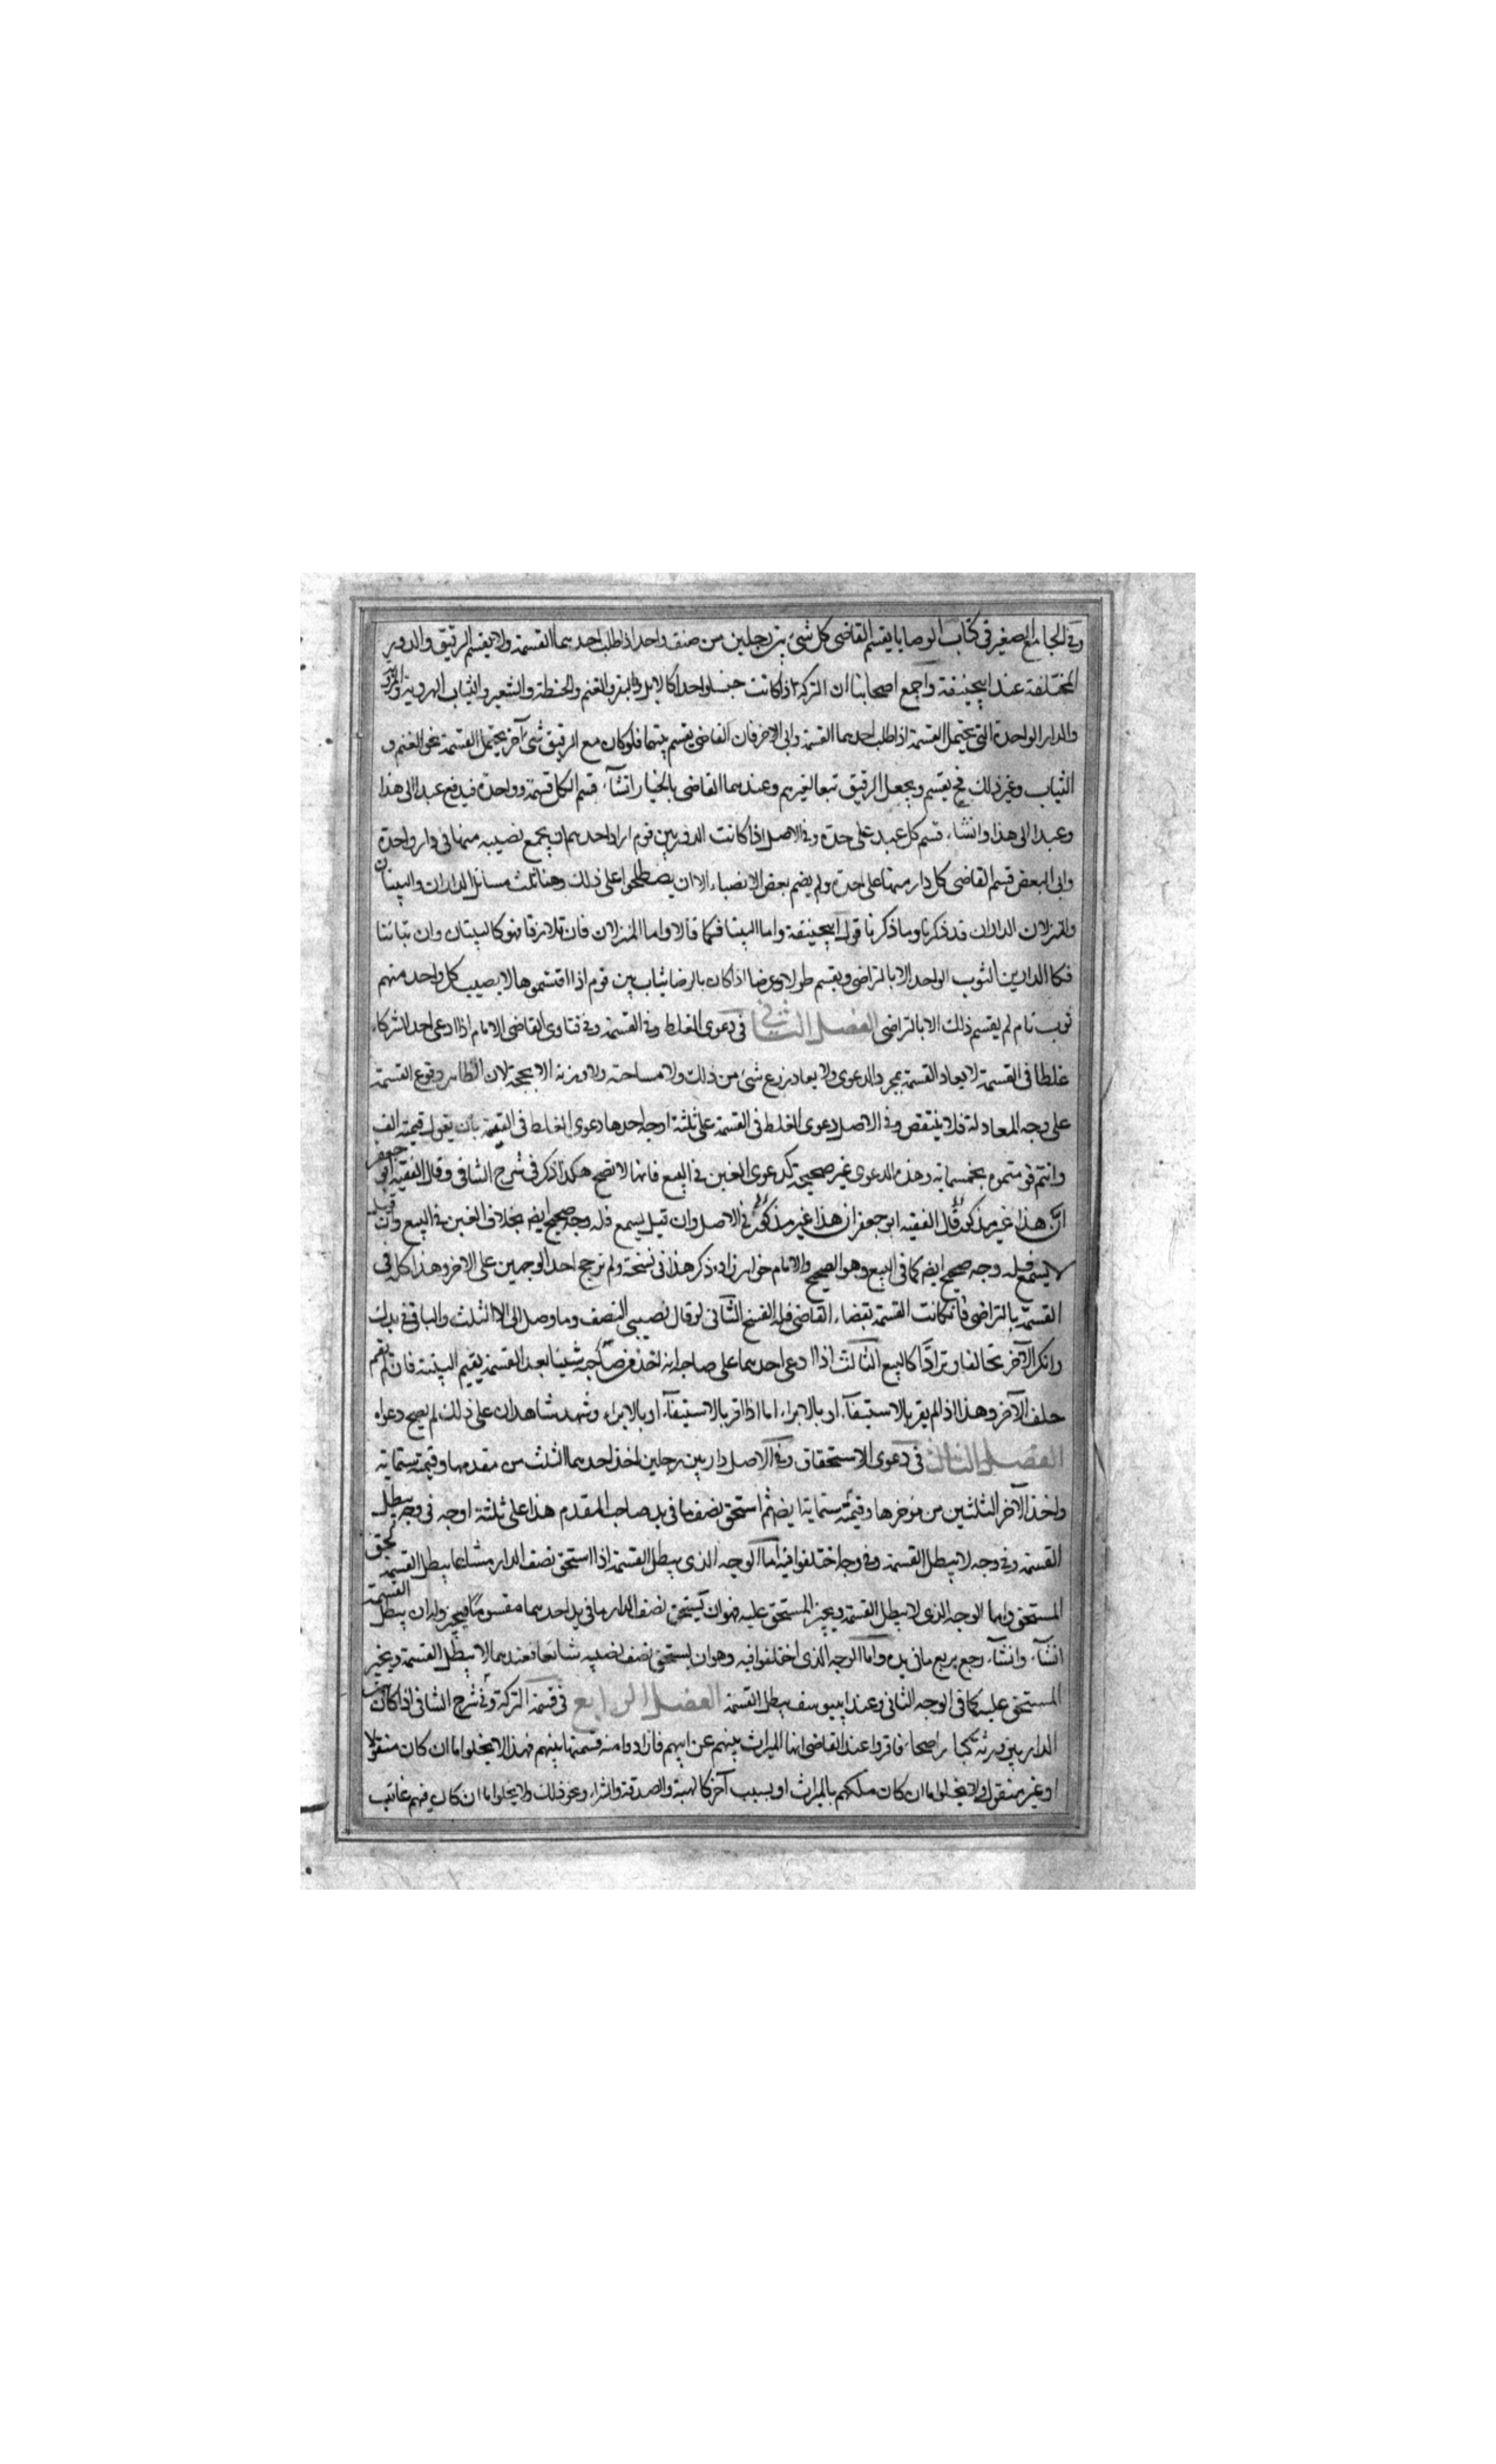 وفي الجامع الصغير في كتاب الوصايا يقسم القاضي كل شئ بين رجلين من صنف واحد اذا طلب احدهما القسمة ولا يقسم الرقيق والدور
المختلفة عند ابيحنيفة واجمع اصحابنا ان التركة اذا كانت جنسا واحدا كالابل والبقر والغنم والحنطة والشعير والثياب الهروية والمروية
والدار الواحدة التي يحتمل القسمة اذا طلب احدهما القسمة وابى الاخر فان القاضي يقسم بينهما فلو كان مع الرقيق شئ آخر يحتمل القسمة نحو الغنم و
الثياب وغير ذلك فح يقسم ويجعل الرقيق تبعا لغيرهم وعندهما القاضي بالخيار انشآء قسم الكل قسمة وواحدة فيدفع عبدا الى هذا
وعبدا الى هذا وانشاء قسم كل عبد على حدة وفي الاصل اذا كانت الدور بين قوم اراد احدهم ان يجمع نصيبه منها في دار واحدة
وابى البعض قسم القاضي كل دار منها على حدة ولم يضم بعض الانصباء الا ان يصطلحوا على ذلك وهنا ثلث مسائل الداران والبيتان
والمنزلان الداران قد ذكرنا وما ذكرنا قول ابيحنيفة واما البيتا فكما قالا واما المنزلان فان تلازقا فهو كالبيتان وان تباينتا
فكا الدارين الثوب الواحد الا بالتراضي ويقسم طولا وعرضا اذا كان بالرضا ثياب بين قوم اذا اقتسموها لا يصيب كل واحد منهم
ثوب تام لم يقسم ذلك الا بالتراضي الفصل الثاني في دعوى الغلط وفي القسمة وفي فتاوى القاضي الامام اذا ادعى احد الشركاء
غلطا في القسمة لا يعاد القسمة بمجرد الدعوى ولا يعاد بزرع شئ من ذلك ولا مساحته ولا وزنه الا بحجة لان الظاهر وقوع القسمة
على وجه المعادلة فلا ينتقض وفي الاصل دعوى الغلط في القسمة على ثلثة اوجه احدها دعوى الغلط في القيمة بان يقول قيمته الف
وانتم قومتموه بخمسماية وهذه الدعوى غير صحيحة كدعوى الغبن في البيع فانها لا تصح هكذا ذكر في شرح الشافي وقال الفقيه ابو جعفر
ان هذا غير مذكور قال الفقيه ابو جعفر ان هذا غير مذكور في الاصل وان قيل يسمع فله وجه صحيح ايضم بخلاف الغبن في البيع وان قيل
لا يسمع فله وجه صحيح ايضم كما في البيع وهو الصحيح والامام خواهرزاده ذكر هذا في نسخة ولم نرجح احد الوجهين على الاخر وهذا كله في
القسمة بالتراضي فان كانت القسمة بقضاء القاضي فله الفسخ الثاني لو قال نصيبي النصف وما وصل الى الا الثلث والباقي في يدك
وانكر الآخر تحالفا وترادا كالبيع الثالث اذا ادعى احدهما على صاحبه انه اخذ من حصته شيئا بعد القسمة يقيم البينة فان لم يقم
حلف الآخر وهذا اذا لم يقر بالاستيفآء او بالابراء اما اذا اقر بالاستيفآء او بالابراء وشهد شاهدان على ذلك لم يصح دعواه
الفصل الثالث في دعوى الاستحقاق وفي الاصل دار بين رجلين اخذ احدهما الثلث من مقدمها وقيمته ستماية
واخذ الآخر الثلثين من مؤخرها وقيمته ستماية ايضم ثم استحق نصف ما في يد صاحب المقدم هذا على ثلثة اوجه في وجه يبطل
القسمة وفي وجه لا يبطل القسمة وفي وجه اختلفوا فيه اما الوجه الذي يبطل القسمة اذا استحق نصف الدار مشاعا يبطل القسمة
المستحق واما الوجه الذي لا يبطل القسمة ويخير المستحق عليه فهو ان يستحق نصف الدار ما في يد احدهما مقسوما فيخير وله ان يبطل القسمة
انشآء وانشآء رجع بربع ما في يده واما الوجه الذي اختلفوا فيه وهو ان يستحق نصف نصيبه شائعا فعندهما لا يبطل القسمة ويخير
المستحق عليه كما في الوجه الثاني وعند ابييوسف يبطل القسمة الفصل الرابع في قسمة التركة وفي شرح الشافي اذا كانت
الدار بين ورثة كبار اصحاء فاقروا عند القاضي انها الميراث بينهم عن ابيهم فارادوا منه قسمتها بينهم فهذا لا يخلوا اما ان كان منقولا
او غير منقول ولا يخلوا اما ان كان ملكهم بالميراث او بسبب آخر كالهبة والصدقة والشراء ونحو ذلك ولا يخلوا اما ان كان فيهم غائب